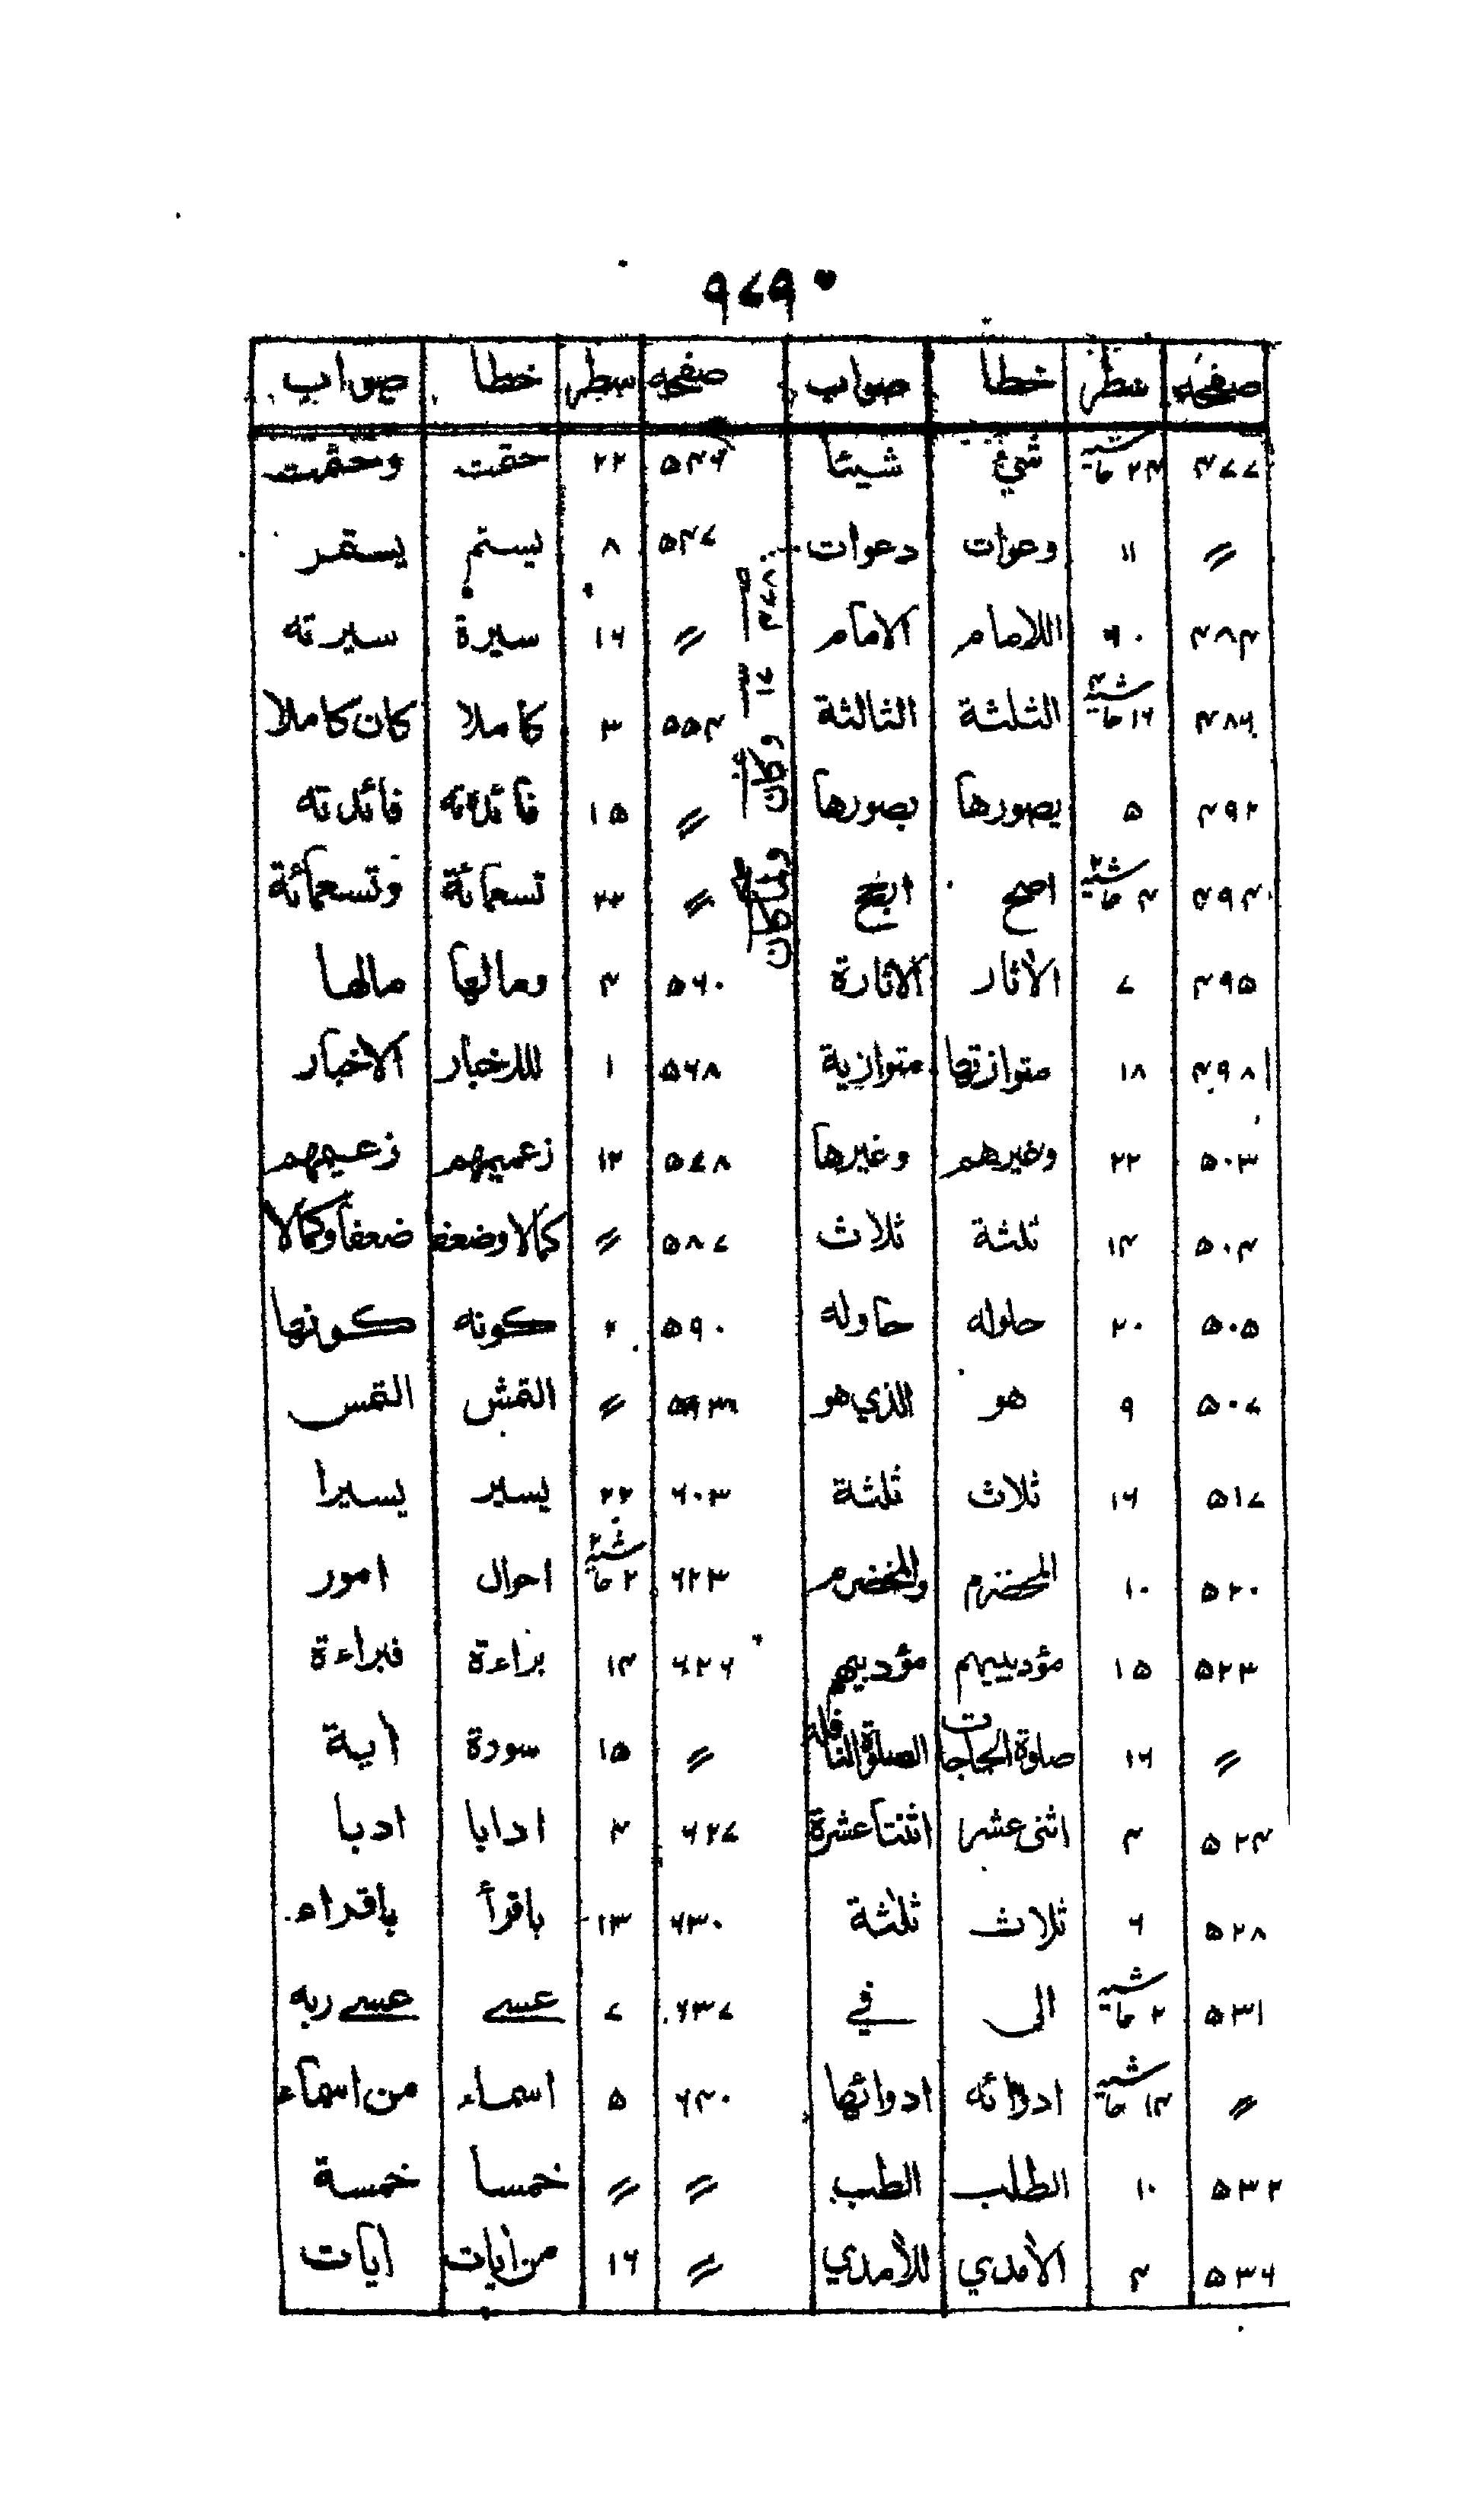 ۹۷۹
صفحه سطر خطا صواب صفحه سطر خطا صواب
۴۷۷ ۲۴ حاشیة شيئ شيئا ۵۴۶ ۲۲ حقمت وحقمت
〃 ۱۱ وعوات دعوات ۵۴۷ ۸ يستم يستمر
۴۸۴ ۶۰ اللامام الامام 〃 ۱۶ سيرة سيرته
۴۸۶ ۱۶ حاشیة الثلثة الثالثة ۵۵۴ ۳ كاملا كان كاملا
۴۹۲ ۵ يصورها بصورها 〃 ۱۵ فائدته فائدته
۴۹۴ ۴ حاشیة اصح 〃 ۲۲ تسعمائة وتسعمائة
۴۹۵ ۷ الأثار الاثارة ۵۶۰ ۴ ومالها مالها
۴۹۸ ۱۸ متوازتها متوازية ۵۶۸ ۱ للاخبار الاخبار
۵۰۳ ۲۲ وغيرهم وغيرها ۵۷۸ ۱۲ زعميهم زعيمهم
۵۰۴ ۱۴ ثلثة ثلاث ۵۸۷ 〃 كمالا وضعفا ضعفا وكمالا
۵۰۵ ۲۰ حلوله حاوله ۵۹۰ ۲ كونه كونها
۵۰۷ ۹ هو الذي هو 〃 القمش القمس
۵۱۷ ۱۶ ثلاث ثلثة ۶۰۳ ۲۲ يسير يسيرا
۵۲۰ ۱۰ المخضرم والمخضرم ۶۲۳ ۲ حاشیة احوال امور
۵۲۳ ۱۵ مؤدييهم مؤديهم ۶۲۶ ۱۴ براءة فبراءة
〃 ۱۶ صلوة الحاجات الصلوة النافلة 〃 ۱۵ سورة اية
۵۲۴ ۴ اثنى عشر اثنتا عشرة ۶۲۷ ۳ ادايا ادبا
۵۲۸ ۶ ثلاث ثلثة ۶۳۰ ۱۳ باقرأ باقراء
۵۳۱ ۲ حاشیة الى في ۶۳۷ ۷ عسے عسے ربه
〃 ۱۴ حاشیة ادوائه ادوائها ۶۴۰ ۵ اسماء من اسماء
۵۳۲ ۱۰ الطلب الطب 〃 〃 خمسا خمسة
۵۳۶ ۴ الأمدي للأمدي 〃 ۱۶ من ايات ايات